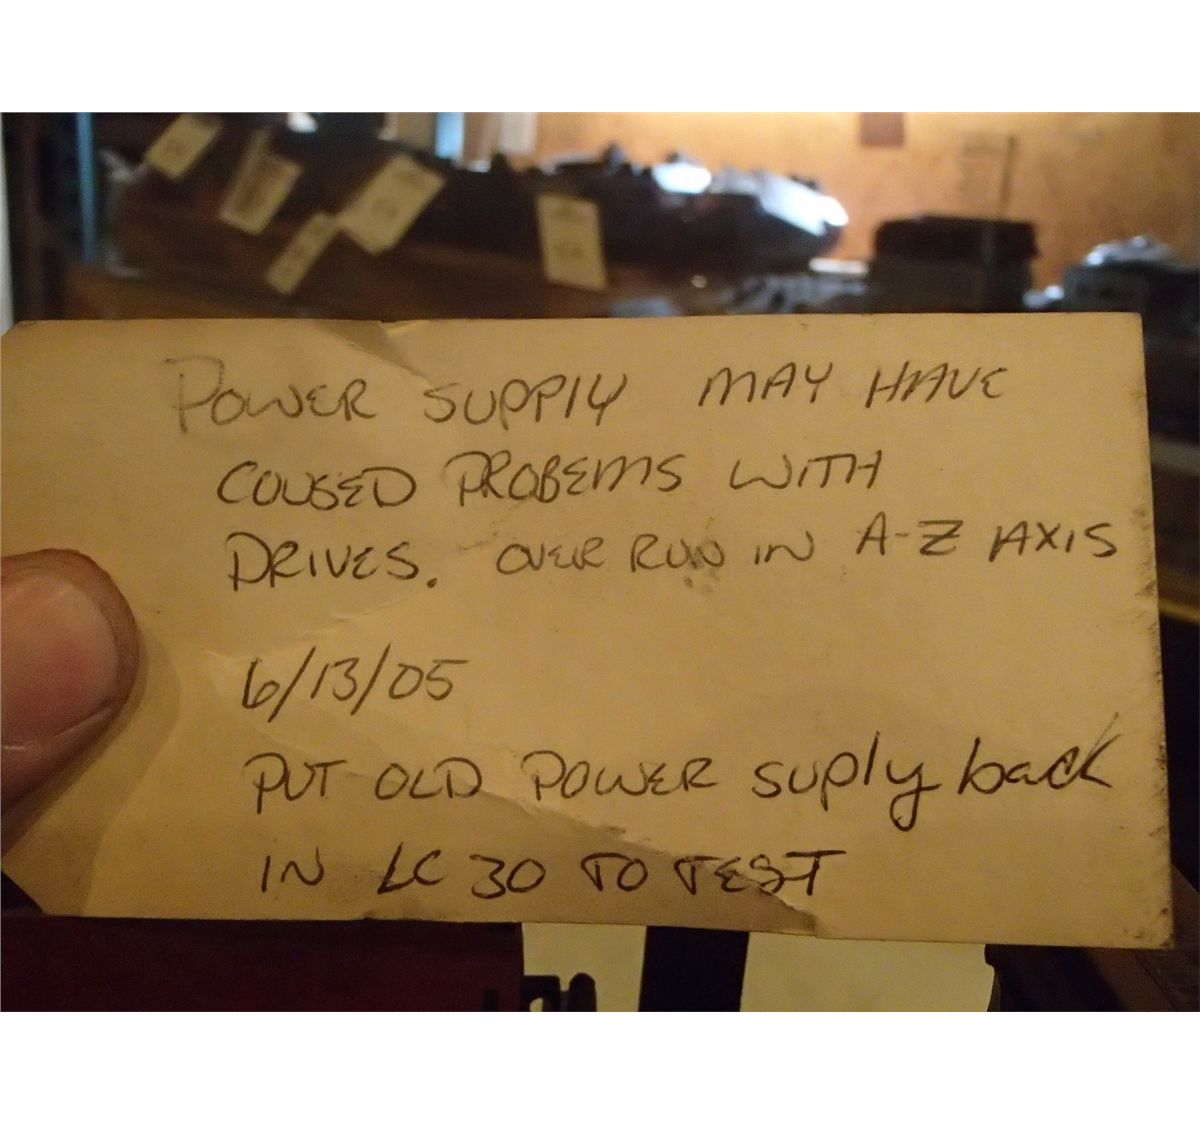 POWER SUPPLY MAY HAVE
COUSED PROBEMS WITH
DRIVES. OVER RUN IN A-Z AXIS
6/13/05
PUT OLD POWER suply back
IN LC 30 TO TEST